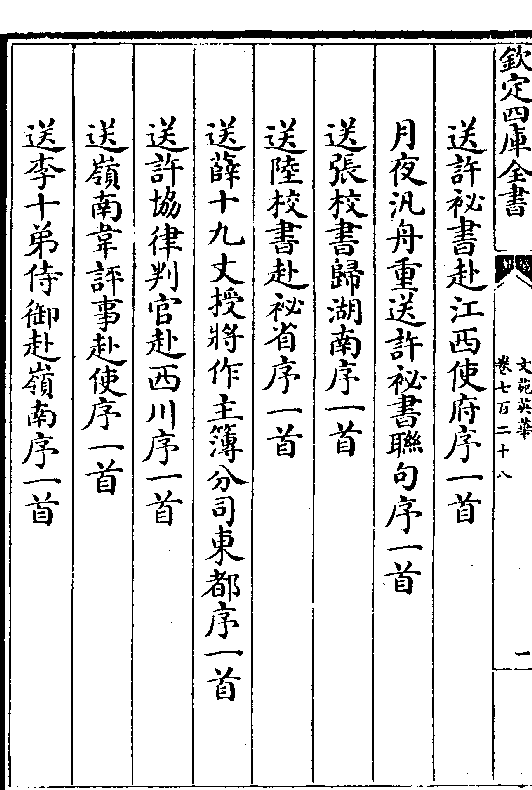 欽定四庫全書
文苑英華
卷七百二十八
一
送許祕書赴江西使府序一首
月夜汎舟重送許祕書聯句序一首
送張校書歸湖南序一首
送陸校書赴祕省序一首
送薛十九丈授將作主簿分司東都序一首
送許協律判官赴西川序一首
送嶺南韋評事赴使序一首
送李十弟侍御赴嶺南序一首